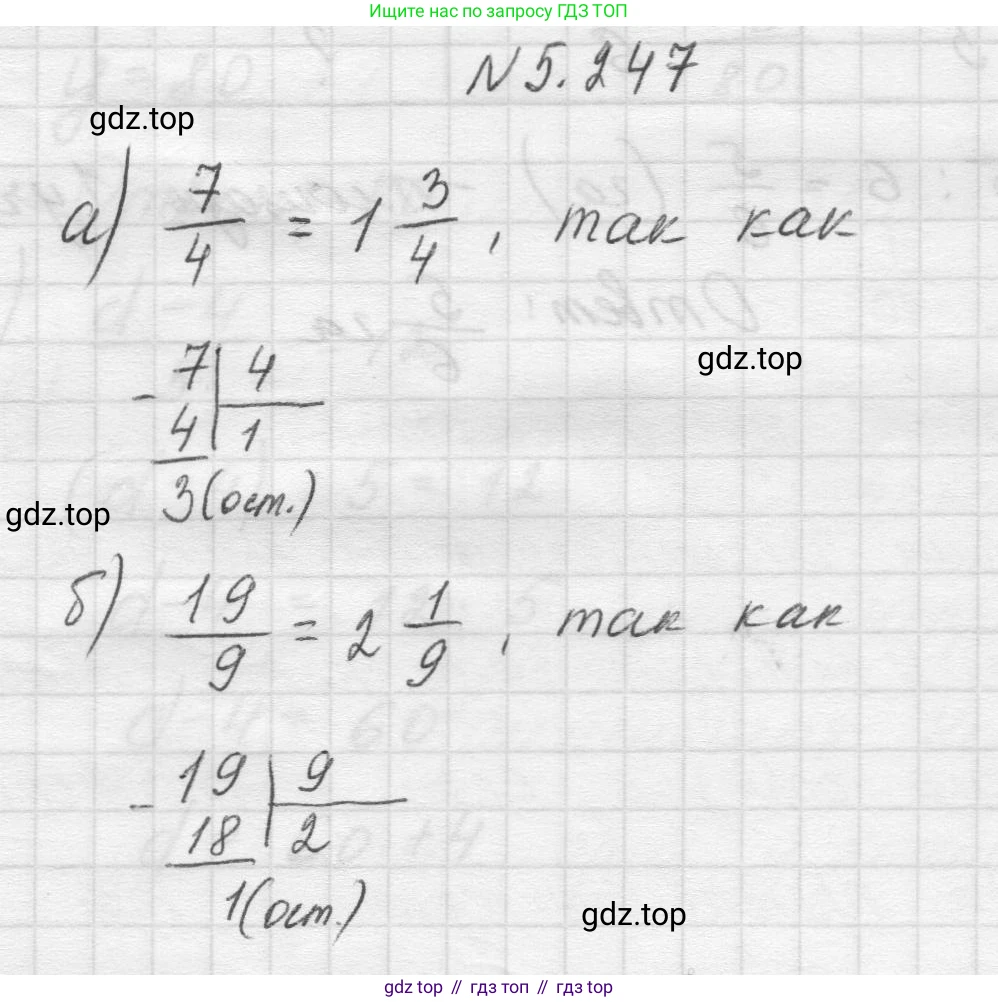 Ищите нас по запросу ГДЗ ТОП
N 5.247
gdz.top
а) 7/4 = 1 3/4, так как
gdz.top
- 7 | 4
4 | 1
3 (ост.)
gdz.top
б) 19/9 = 2 1/9, так как
- 19 | 9
18 | 2
1 (ост.)
gdz.top
gdz.top // гдз топ // gdz top